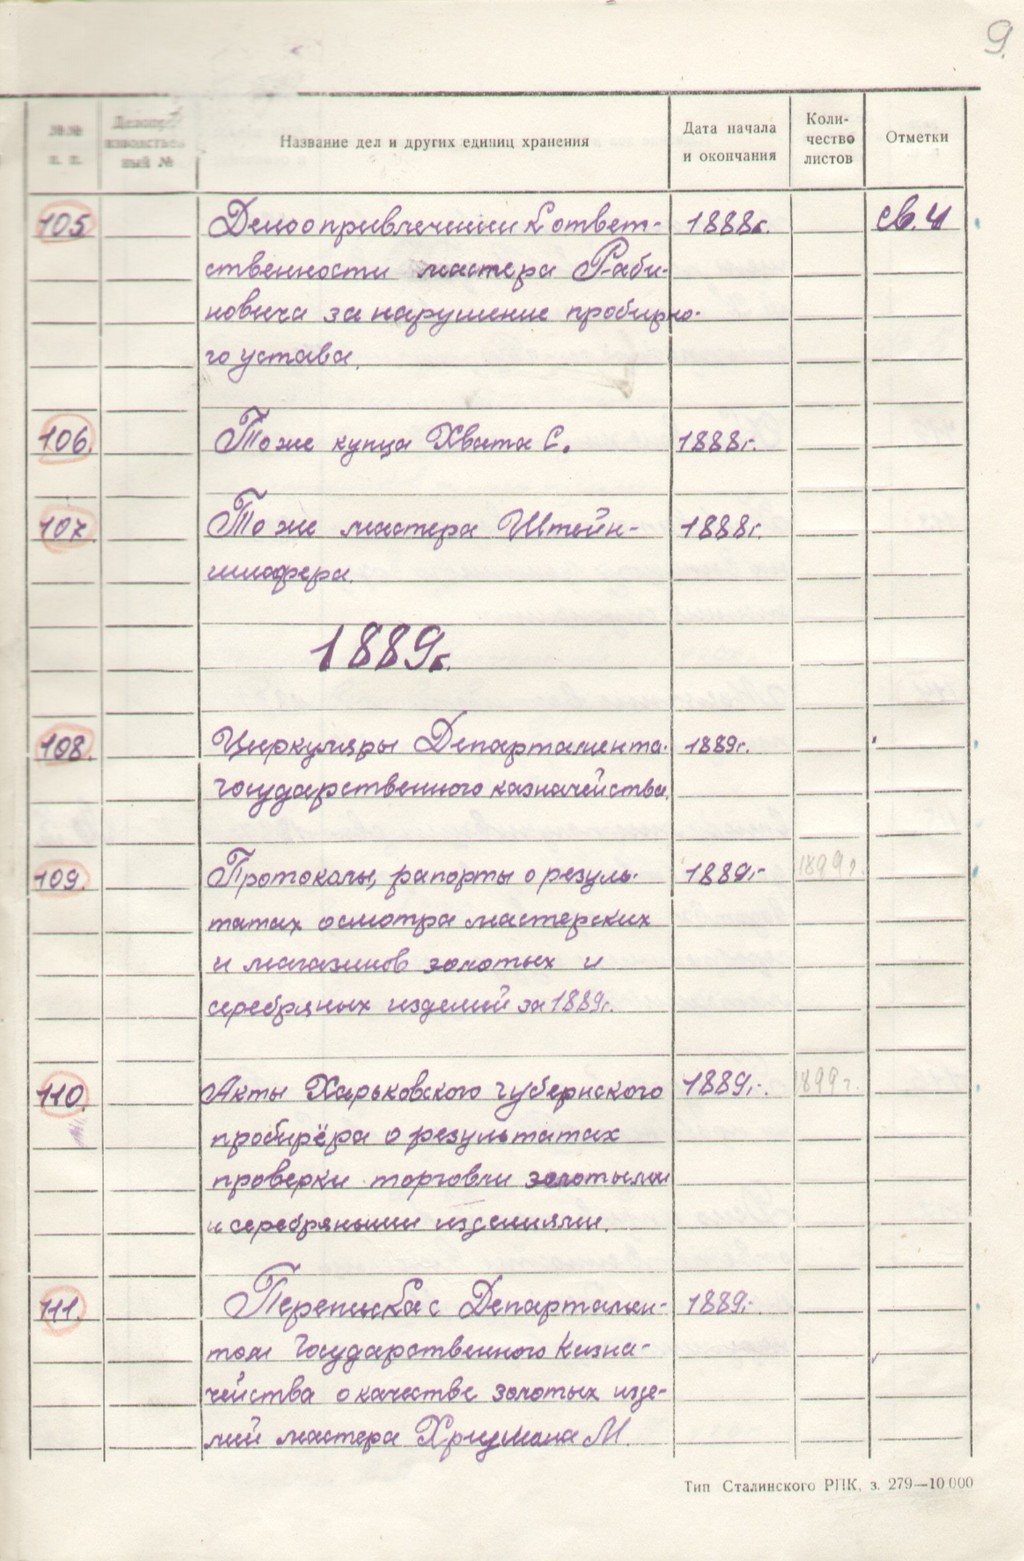 9.
№№
п. п.
Делопро-
изводствен-
ный №
Название дел и других единиц хранения
Дата начала
и окончания
Коли-
чество
листов
Отметки
105 Дело о привлечении к ответ- 1888г. св. 4
ственности мастера Раби-
новича за нарушение пробирно-
го устава.
106. То же купца Хвата С. 1888г.
107. То же мастера Штейн- 1888г.
шлюфера.
1889г.
108. Циркуляры Департамента 1889г.
государственного казначейства.
109. Протоколы, рапорты о резуль- 1889г. 1899г.
татах осмотра мастерских
и магазинов золотых и
серебряных изделий за 1889г.
110. Акты Харьковского губернского 1889г. 1899г.
пробирёра о результатах
проверки торговли золотыми
и серебряными изделиями.
111. Переписка с Департамен- 1889г.
том Государственного Казна-
чейства о качестве золотых изде-
лий мастера М.
Тип Сталинского РПК, з. 279—10 000